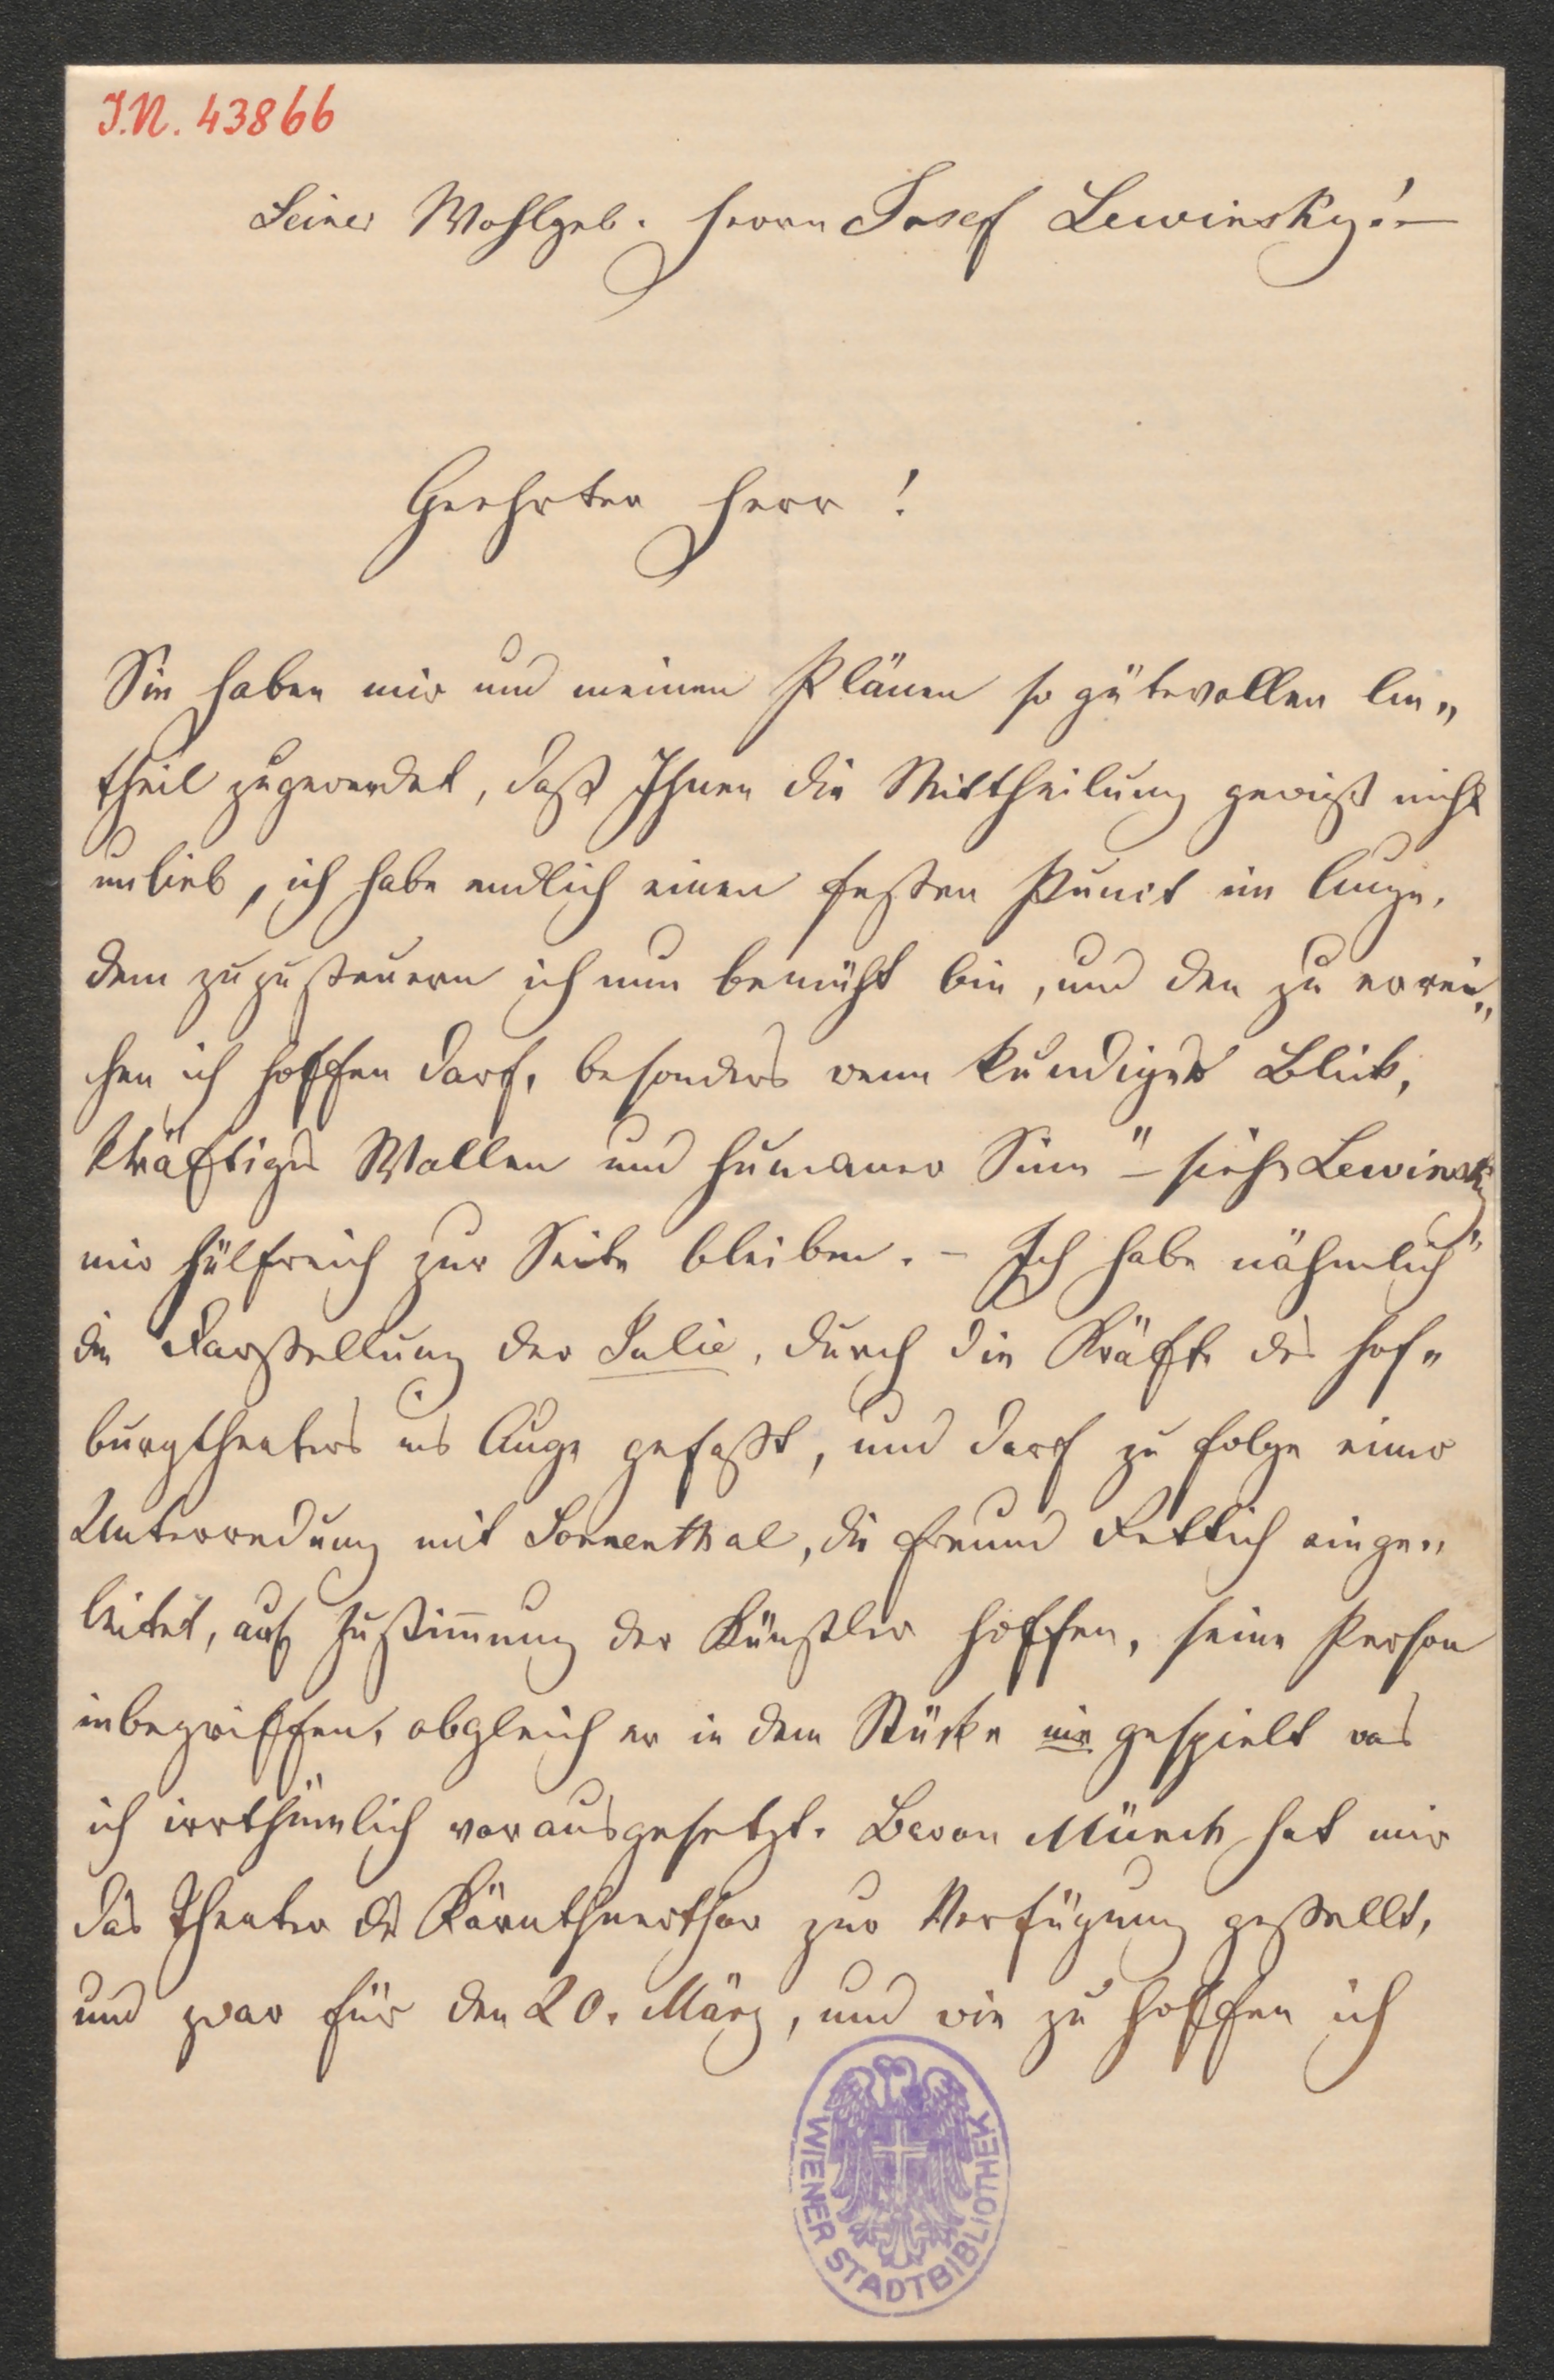 I.N. 43866
Seiner Wohlgeb. Herrn Josef Lewinsky! —
Geehrter Herr!
Sie haben mir und meinen Plänen so gütevollen An„
theil zugewendet, daß Ihnen die Mittheilung gewiß nicht
unlieb, ich habe endlich einen festen Punct im Auge,
dem zuzusteuern ich nun bemüht bin, und den zu errei„
chen ich hoffen darf, besonders wenn kundiger Blick,
kräftiges Wollen und humaner Sinn" – siehe Lewinsky
mir hülfreich zur Seite bleiben. – Ich habe nähmlich"
die Darstellung der Julie, durch die Kräfte des Hof„
burgtheaters ins Auge gefaßt, und darf zu folge einer
Unterredung mit Sonnenthal, die Freund Rettich einge„
leitet, auf Zustim̄ung der Künstler hoffen, seine Person
inbegriffen, obgleich er in dem Stücke nie gespielt was
ich irrthümlich vorausgesetzt. Baron Münch hat mir
das Theater des Kärnthnerthor zur Verfügung gestellt,
und zwar für den 20. März, und wie zu hoffen ich
WIENER STADTBIBLIOTHEK